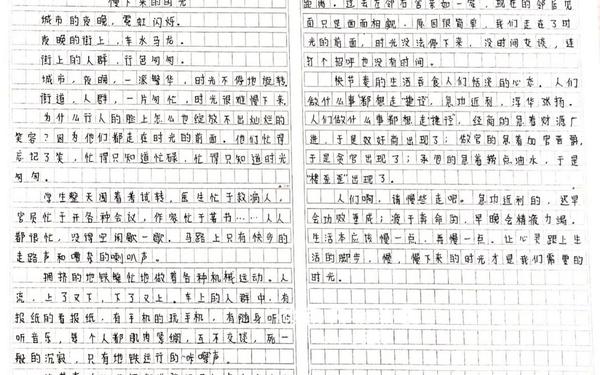 慢下来的时光
城市的夜晚，霓虹闪烁。
夜晚的街上，车水马龙。
街上的人群，行色匆匆。
城市，夜晚，一派繁华，时光不停地旋转
街道，人群，一片匆忙，时光很难慢下来
为什么行人的脸上怎么也绽放不出灿烂的
笑容？因为他们都走在时光的前面。他们忙得
忘记了笑，忙得只知道忙碌，忙得只知道时光
匆匆。
学生整天围着考试转，医生忙于救病人，
官员忙于开各种会议，作家忙于著书……人人
都很忙，没得空闲歇一歇。马路上只有快步的
走路声和嘈杂的喇叭声。
拥挤的地铁整忙地做着各种机械运动。人
流，上了又下，下了又上。车上的人群中，有
报纸的看报纸，有手机的玩手机，有随身听的
听音乐，每个人都肌肉紧绷，互不交谈，死一
般的沉寂，只有地铁运行的"咔嚓"声。
距离。过去在邻居宫亲如一家，现在的邻居见
面只是面面相觑。原因很简单，我们走在了时
光的前面，时光没法停下来，没时间交谈，连
打个招呼也没有时间。
快节奏的生活吞食人们恬淡的心态。人们
做什么事都想走"捷径"，急功近利，浮华张扬。
人们做什么事都想走捷径，经商的急着财源广
进，于是奸商出现了；做官的急着加官晋爵，
于是贪官出现了；承包的急着捞点油水，于是
"楼歪歪"出现了。
人们啊，请慢些走吧。急功近利的，迟早
会功败垂成；疲于奔命的，早晚会精疲力竭。
生活本应该慢一点，再慢一点。让心灵跟上生
活的脚步，慢，慢下来的时光才是我们需要的
时光。